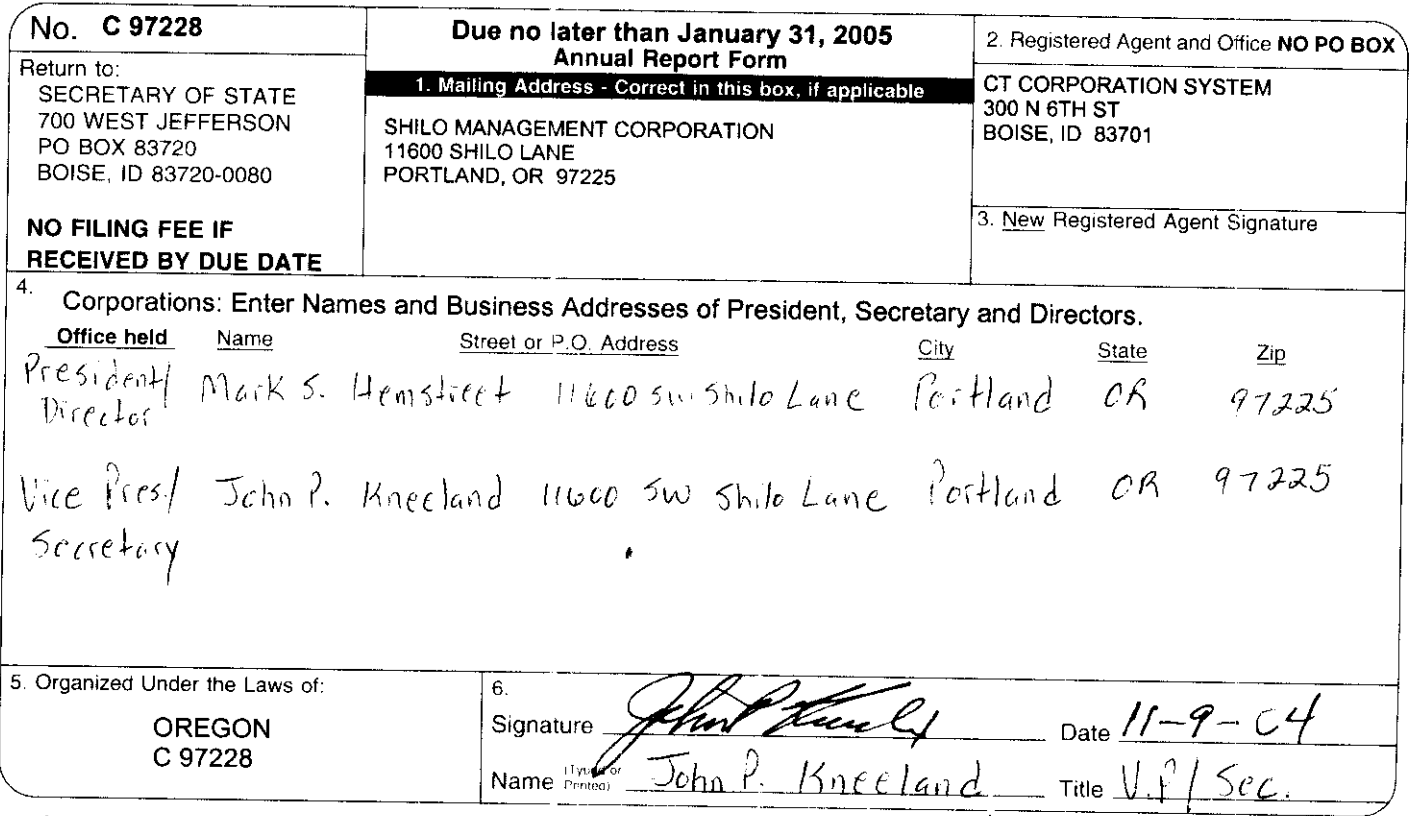 No. C 97228
Return to:
SECRETARY OF STATE
700 WEST JEFFERSON
PO BOX 83720
BOISE, ID 83720-0080
NO FILING FEE IF
RECEIVED BY DUE DATE
Due no later than January 31, 2005
Annual Report Form
1. Mailing Address - Correct in this box, if applicable
SHILO MANAGEMENT CORPORATION
11600 SHILO LANE
PORTLAND, OR 97225
2. Registered Agent and Office NO PO BOX
CT CORPORATION SYSTEM
300 N 6TH ST
BOISE, ID 83701
3. New Registered Agent Signature
4.
Corporations: Enter Names and Business Addresses of President, Secretary and Directors.
Office held Name Street or P.O. Address City State Zip
President/ Mark S. Hemstreet 11600 SW Shilo Lane Portland OR 97225
Director
Vice Pres./ John P. Kneeland 11600 SW Shilo Lane Portland OR 97225
Secretary
5. Organized Under the Laws of:
OREGON
C 97228
6.
Signature John P Kneeland Date 11-9-04
Name (Typed or Printed) John P. Kneeland Title V.P / Sec.